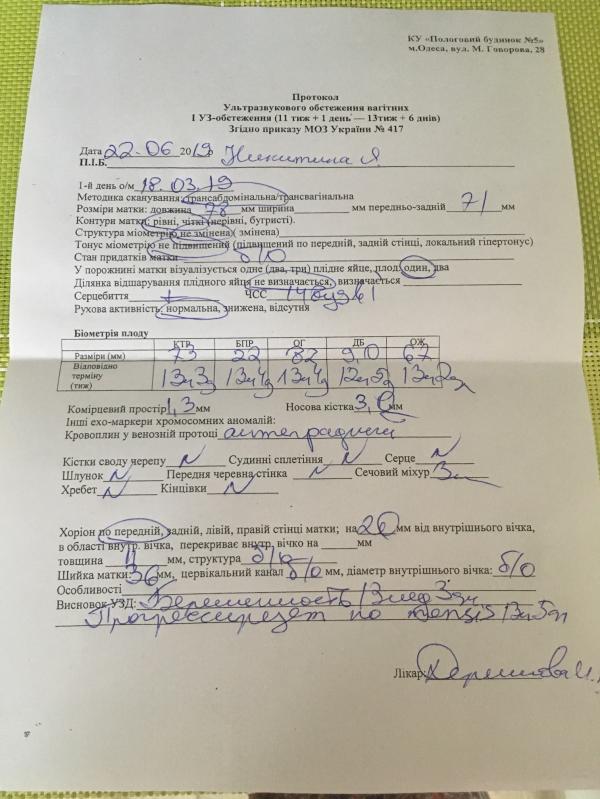 КУ «Пологовий будинок №5»
м.Одеса, вул. М. Говорова, 28
Протокол
Ультразвукового обстеження вагітних
І УЗ-обстеження (11 тиж + 1 день — 13тиж + 6 днів)
Згідно приказу МОЗ України № 417
Дата 22.06 2019р
П.І.Б. Никитина Я.
1-й день о/м 18.03.19
Методика сканування: трансабдомінальна/трансвагінальна
Розміри матки: довжина 78 мм ширина мм передньо-задній 71 мм
Контури матки: рівні, чіткі (нерівні, бугристі).
Структура міометрію не змінена( змінена)
Тонус міометрію не підвищений (підвищений по передній, задній стінці, локальний гіпертонус)
Стан придатків матки б/о
У порожнині матки візуалізується одне (два, три) плідне яйце, плод: один, два
Ділянка відшарування плідного яйця не визначається, визначається
Серцебиття + ЧСС 148
Рухова активність: нормальна, знижена, відсутня
Біометрія плоду
КТР БПР ОГ ДБ ОЖ
Розміри (мм) 73 22 82 9,0 67
Відповідно терміну (тиж) 13н3д 13н4д 13н4д 12н5д
Комірцевий простір 1,3 мм Носова кістка мм
Інші ехо-маркери хромосомних аномалій:
Кровоплин у венозній протоці
Кістки своду черепу N Судинні сплетіння N Серце N
Шлунок N Передня черевна стінка N Сечовий міхур
Хребет N Кінцівки N
Хоріон по передній, задній, лівій, правій стінці матки; на мм від внутрішнього вічка,
в області внутр. вічка, перекриває внутр. вічко на мм
товщина 11 мм, структура б/о
Шийка матки 36 мм, цервікальний канал б/о мм, діаметр внутрішнього вічка: б/о
Особливості
Висновок УЗД: Беременность 13нед 3дн
Прогрессирует по mensis 13н5дн
Лікар: